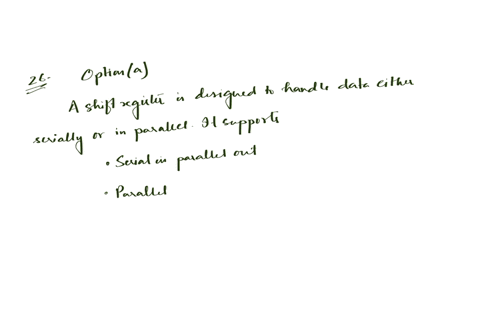 26. Option(a)
A shift register is designed to handle data either
serially or in parallel. It supports
• Serial in parallel out
• Parallel